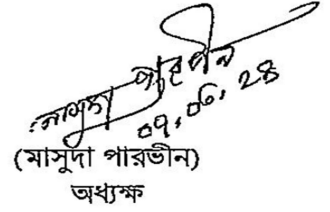 মাসুদা পারভীন
০৭.০৬.২৪
(মাসুদা পারভীন)
অধ্যক্ষ